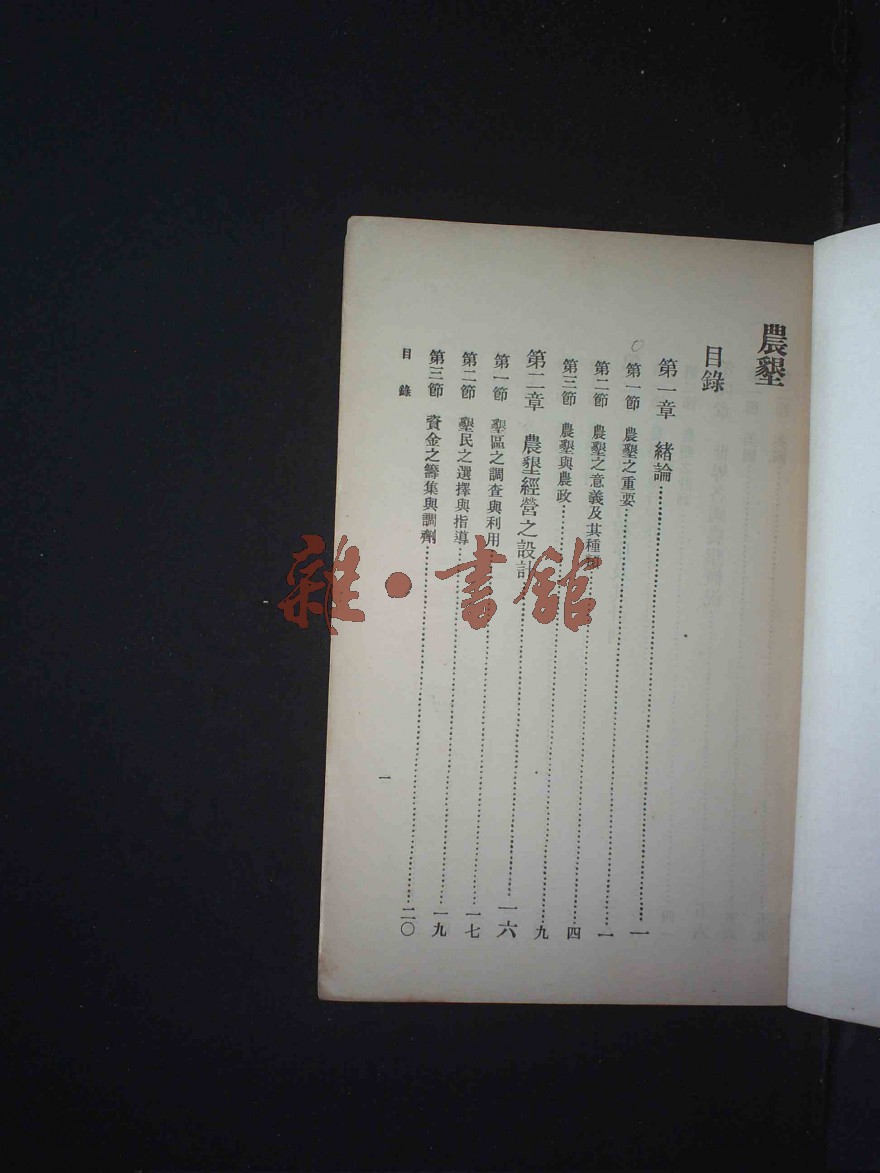 農墾
目錄
第一章 緒論……一
第一節 農墾之重要……一
第二節 農墾之意義及其種類……四
第三節 農墾與農政……九
第二章 農墾經營之設計……一六
第一節 墾區之調查與利用……一七
第二節 墾民之選擇與指導……一九
第三節 資金之籌集與調劑……二〇
目錄 一
雜·書館